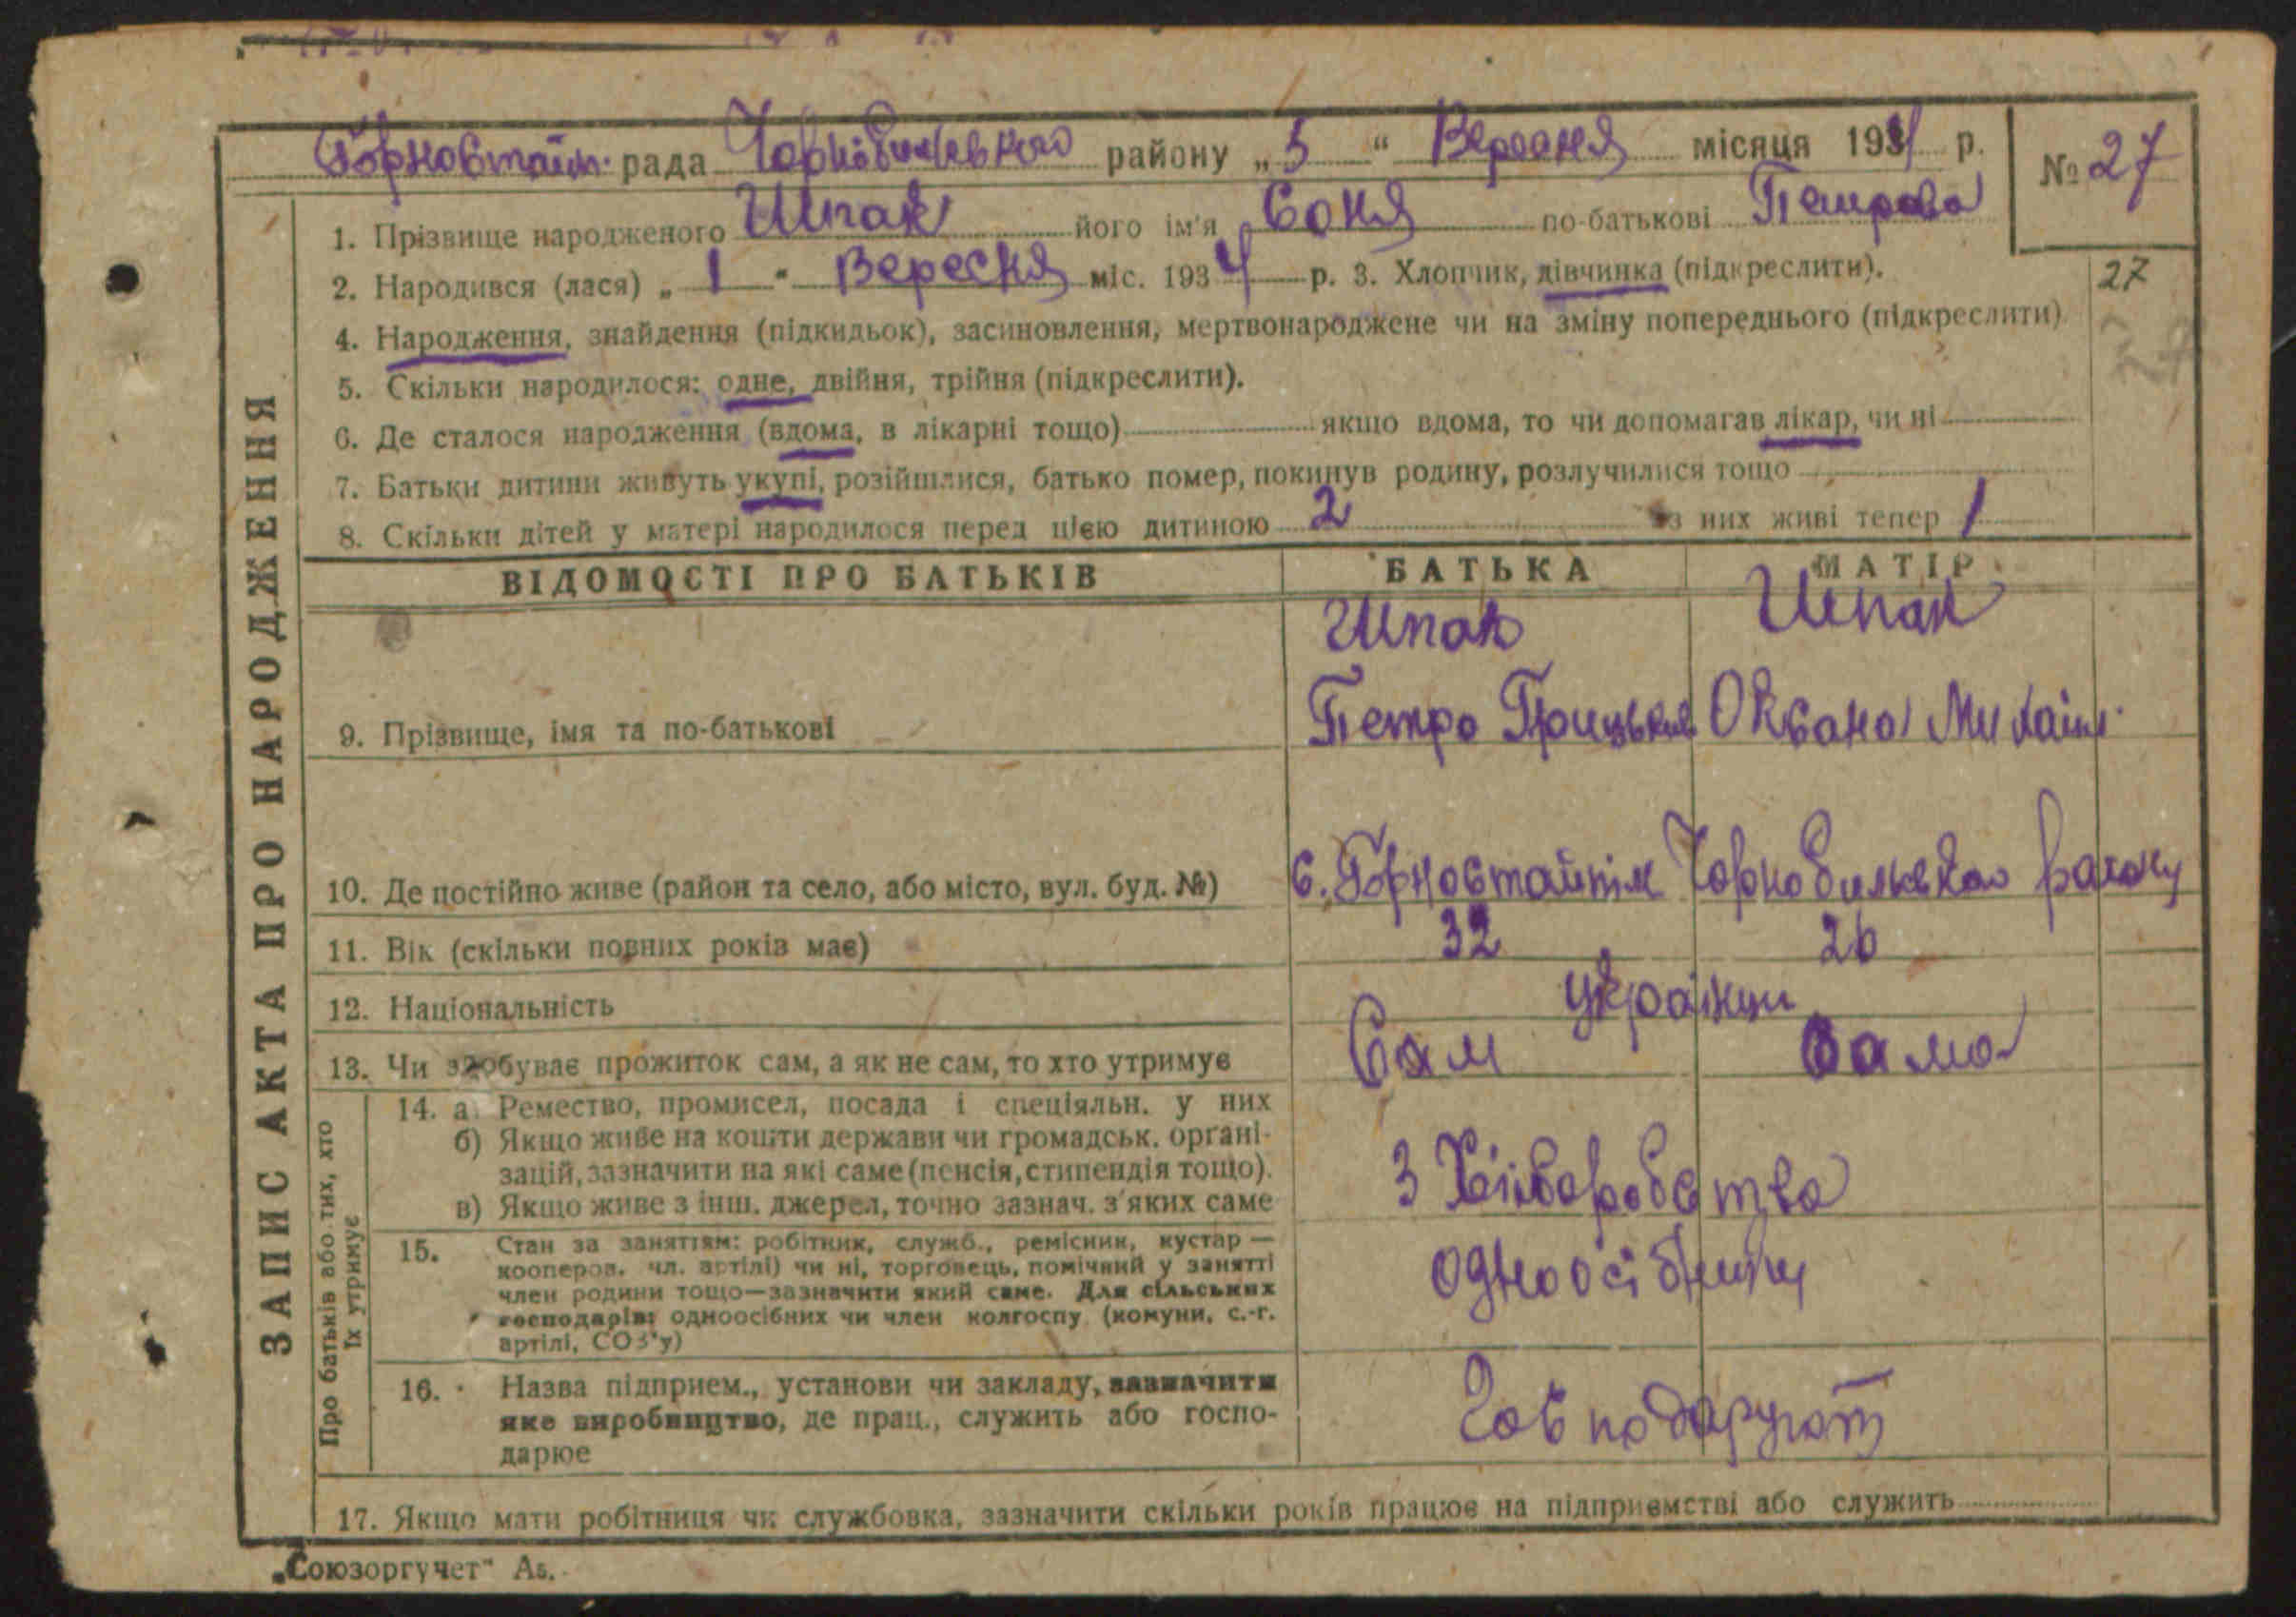 Горностайп. рада Чорнобильського району „5“ Вересня місяця 1934 р. № 27
1. Прізвище народженого Шпак його ім'я Соня по-батькові Петрова
2. Народився (лася) „1“ Вересня міс. 1934 р. 3. Хлопчик, дівчинка (підкреслити). 27
4. Народження, знайдення (підкидьок), засиновлення, мертвонароджене чи на зміну попереднього (підкреслити)
5. Скільки народилося: одне, двійня, трійня (підкреслити).
6. Де сталося народження (вдома, в лікарні тощо) якщо вдома, то чи допомагав лікар, чи ні
7. Батьки дитини живуть укупі, розійшлися, батько помер, покинув родину, розлучилися тощо
8. Скільки дітей у матері народилося перед цією дитиною 2 з них живі тепер 1
ЗАПИС АКТА ПРО НАРОДЖЕННЯ
ВІДОМОСТІ ПРО БАТЬКІВ БАТЬКА МАТІР
Шпак Шпак
9. Прізвище, імя та по-батькові Петро Грицьков Оксана Михайл.
10. Де постійно живе (район та село, або місто, вул. буд. №) с. Горностайпіль Чорнобильського району
11. Вік (скільки повних років має) 32 26
12. Національність Українці
13. Чи здобуває прожиток сам, а як не сам, то хто утримує Сам Сама
Про батьків або тих, хто
їх утримує
14. а) Ремество, промисел, посада і спеціяльн. у них
б) Якщо живе на кошти держави чи громадськ. органі-
зацій, зазначити на які саме (пенсія, стипендія тощо).
в) Якщо живе з інш. джерел, точно зазнач. з'яких саме
З Хліборобства
15. Стан за заняттям: робітник, служб., ремісник, кустар —
кооперов. чл. артілі) чи ні, торговець, помічний у занятті
член родини тощо—зазначити який саме. Для сільських
господарів: одноосібних чи член колгоспу (комуни, с.-г.
артілі, СОЗ'у)
одноосібники
16. Назва підприєм., установи чи закладу, зазначити
яке виробництво, де прац., служить або госпо-
дарює
Господарують
17. Якщо мати робітниця чи службовка, зазначити скільки років працює на підприємстві або служить
„Союзоргучет" А5.